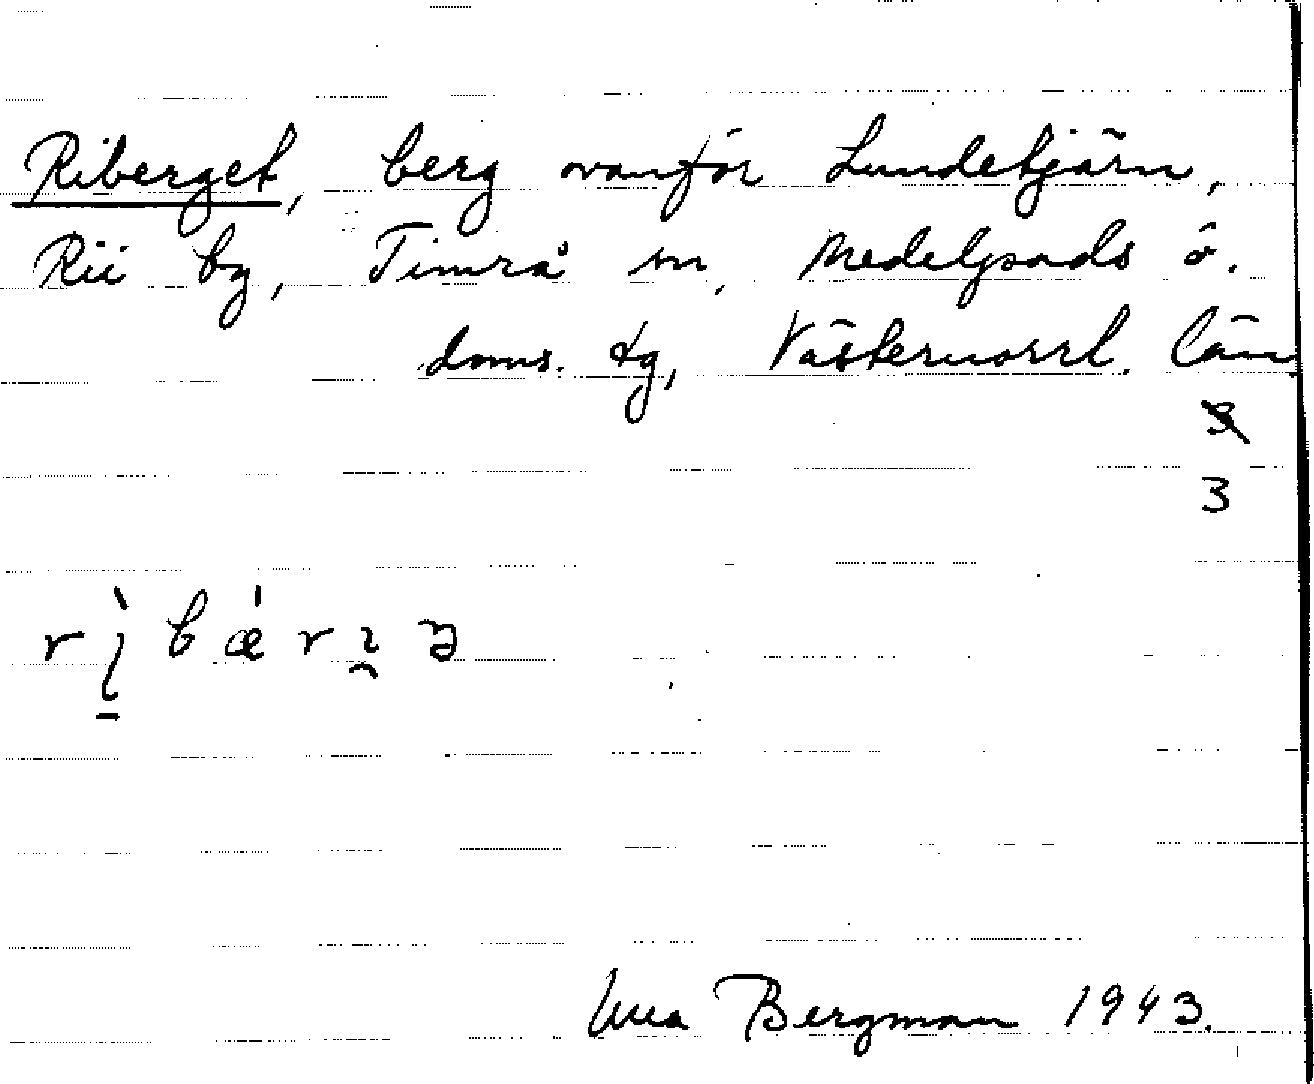 Riberget, berg ovanför Lundetjärn,
Rii by, Timrå sn, Medelpads ö.
doms. dg, Västernorrl. län
3
3
Bergman 1943.